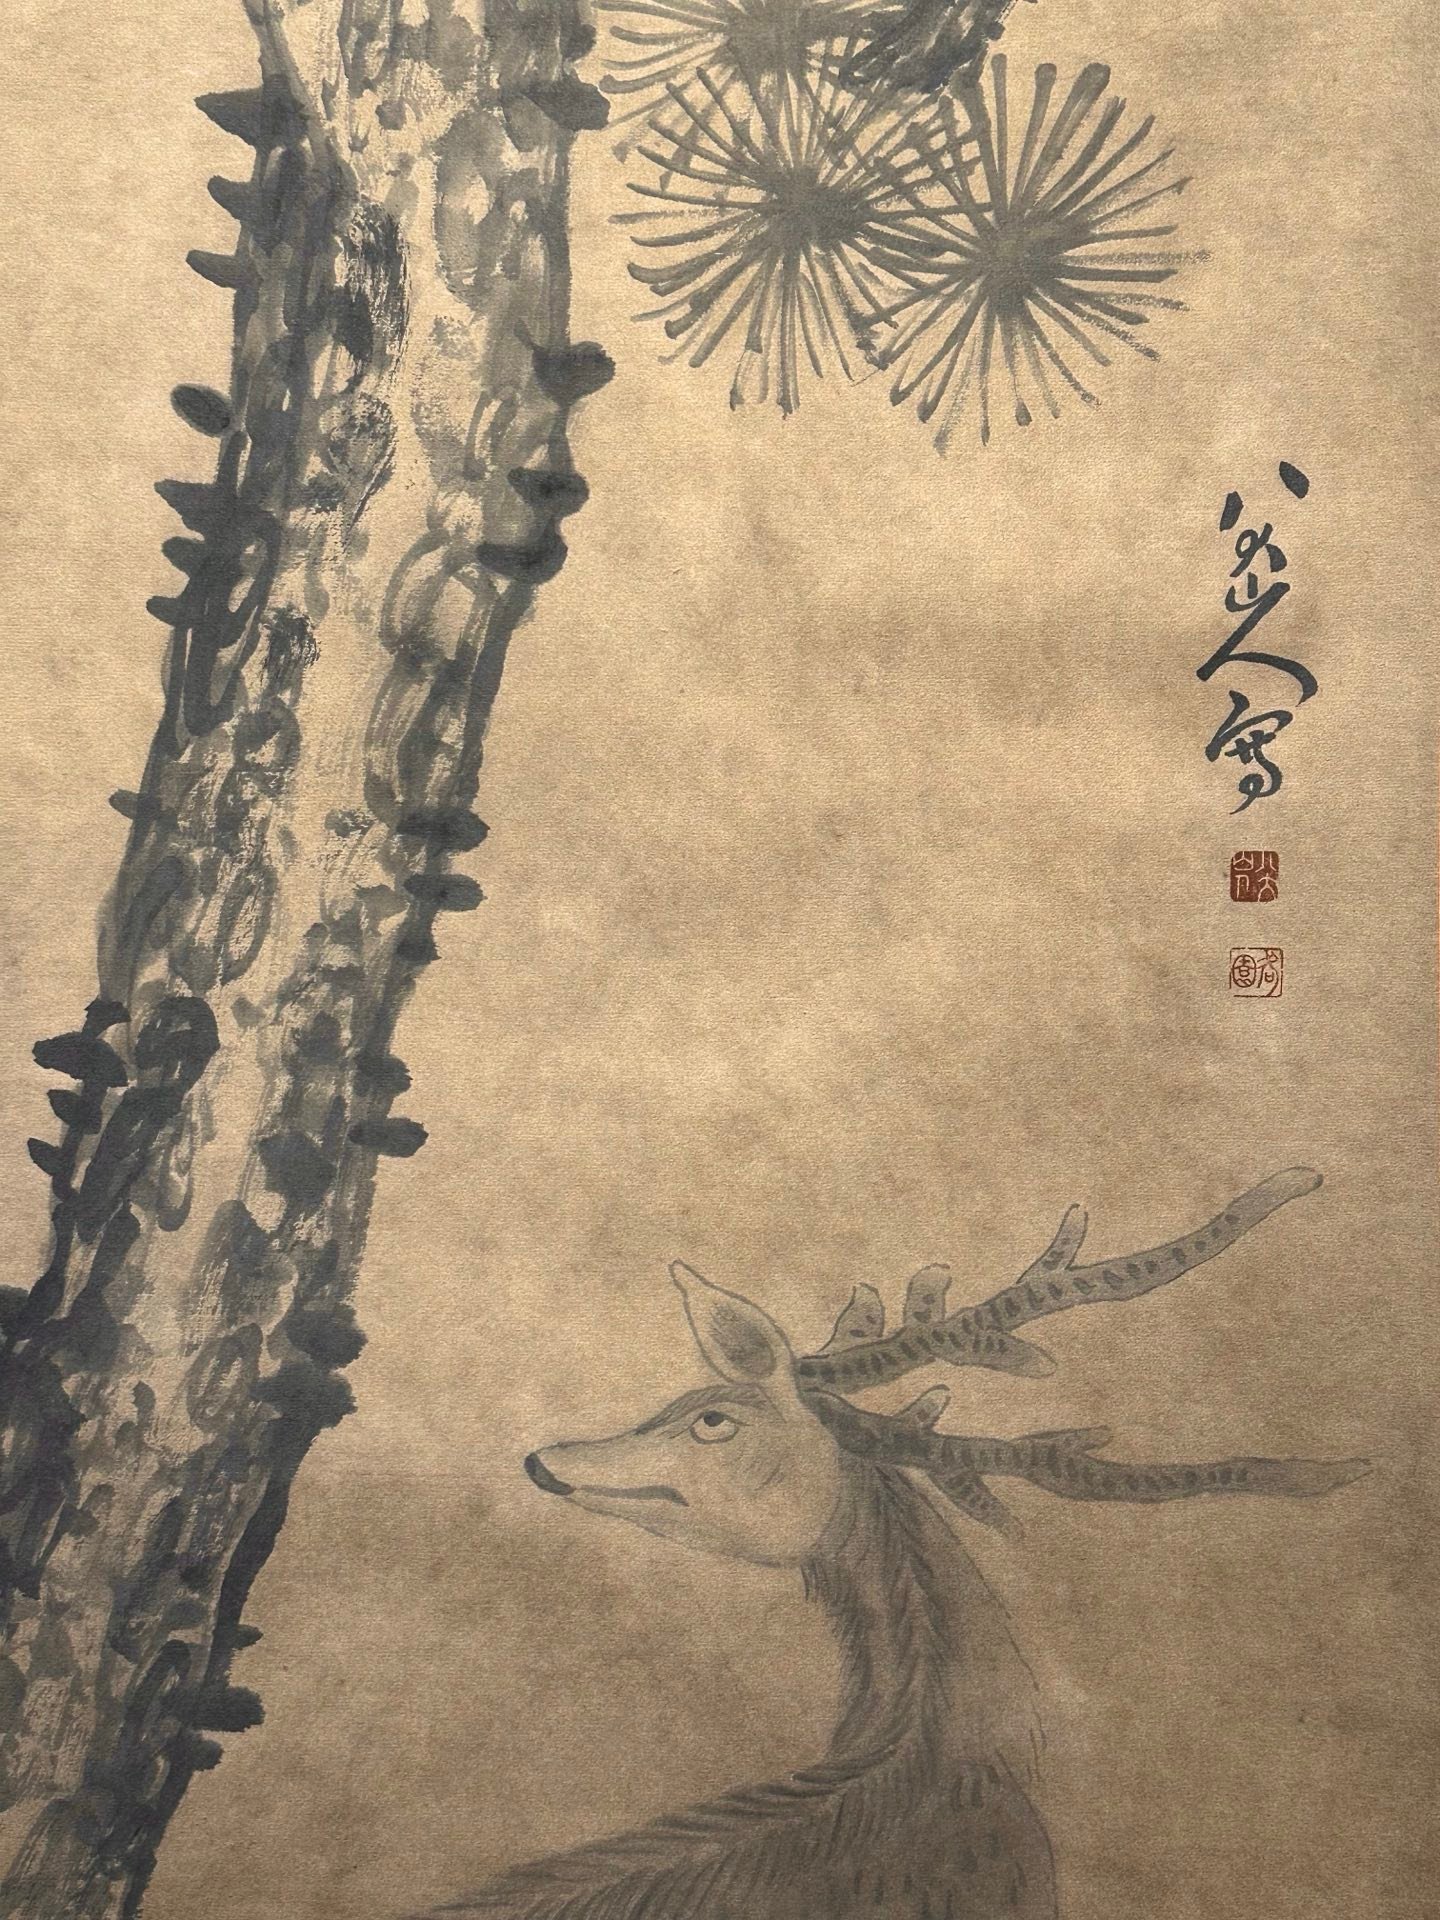 八大山人寫
八大山人
何園